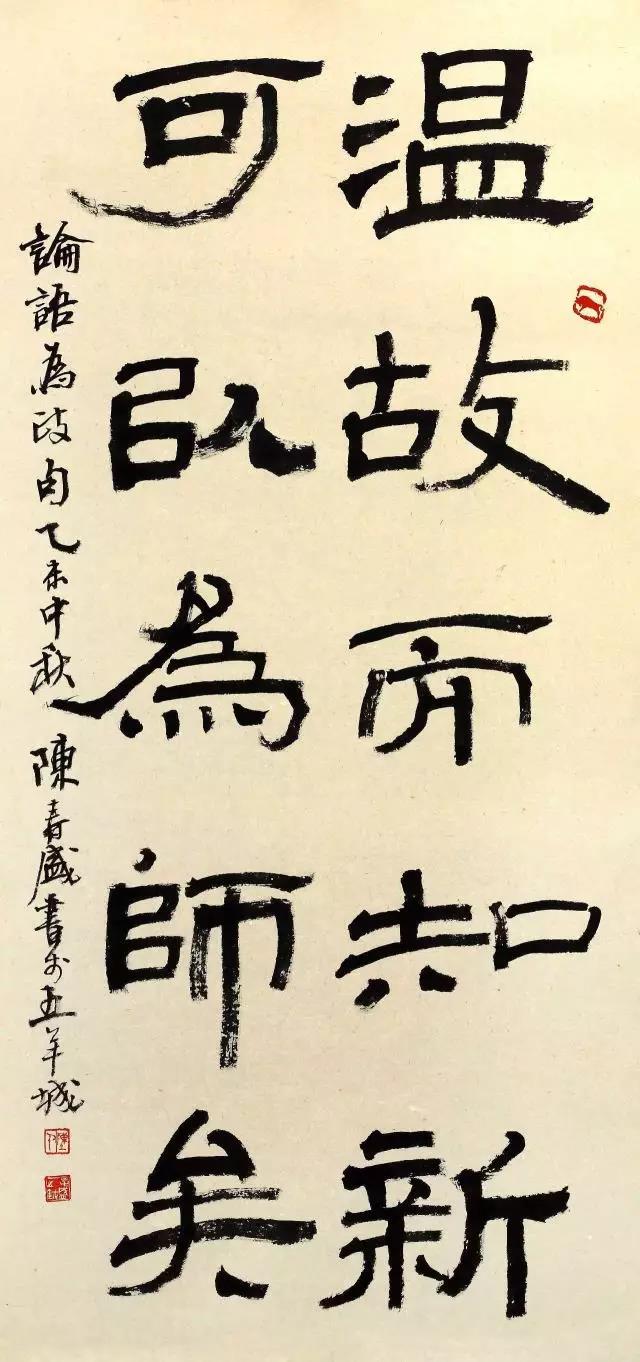 温故而知新
可以為師矣
論語為政句乙未中秋陳春盛書於五羊城